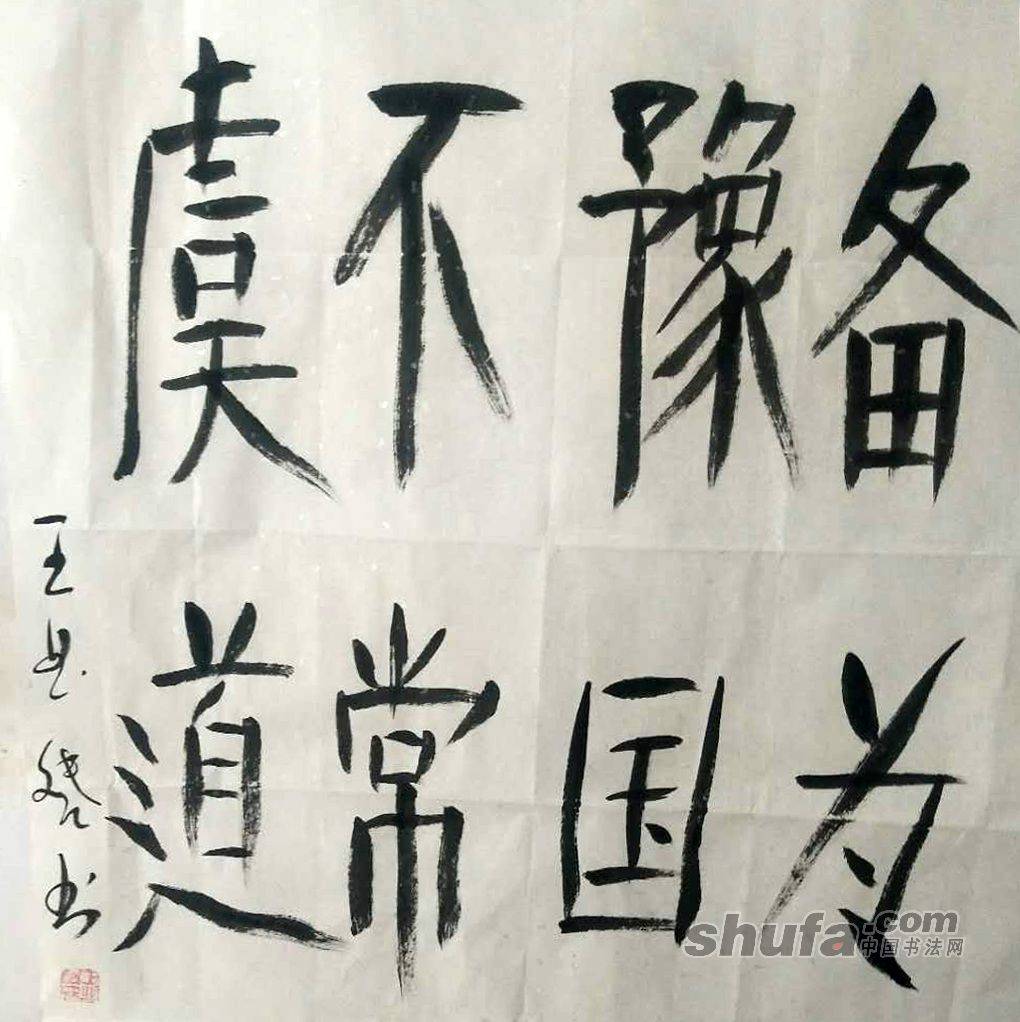 备豫不虞
为国常道
王 书
shufa.com
中国书法网